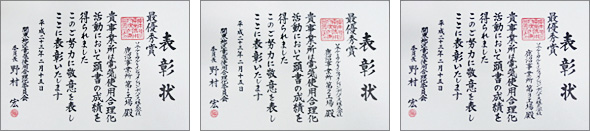 表彰状
最優秀賞
鹿沼事業所 第2工場 殿
貴事業所は電気使用合理化
活動において頭書の成績を
得られました
このご努力に敬意を表し
ここに表彰いたします
平成二十三年二月十五日
関東地区電気使用合理化委員会
委員長 野村 宏
表彰状
最優秀賞
鹿沼事業所 第2工場 殿
貴事業所は電気使用合理化
活動において頭書の成績を
得られました
このご努力に敬意を表し
ここに表彰いたします
平成二十三年二月十五日
関東地区電気使用合理化委員会
委員長 野村 宏
表彰状
最優秀賞
鹿沼事業所 第2工場 殿
貴事業所は電気使用合理化
活動において頭書の成績を
得られました
このご努力に敬意を表し
ここに表彰いたします
平成二十三年二月十五日
関東地区電気使用合理化委員会
委員長 野村 宏